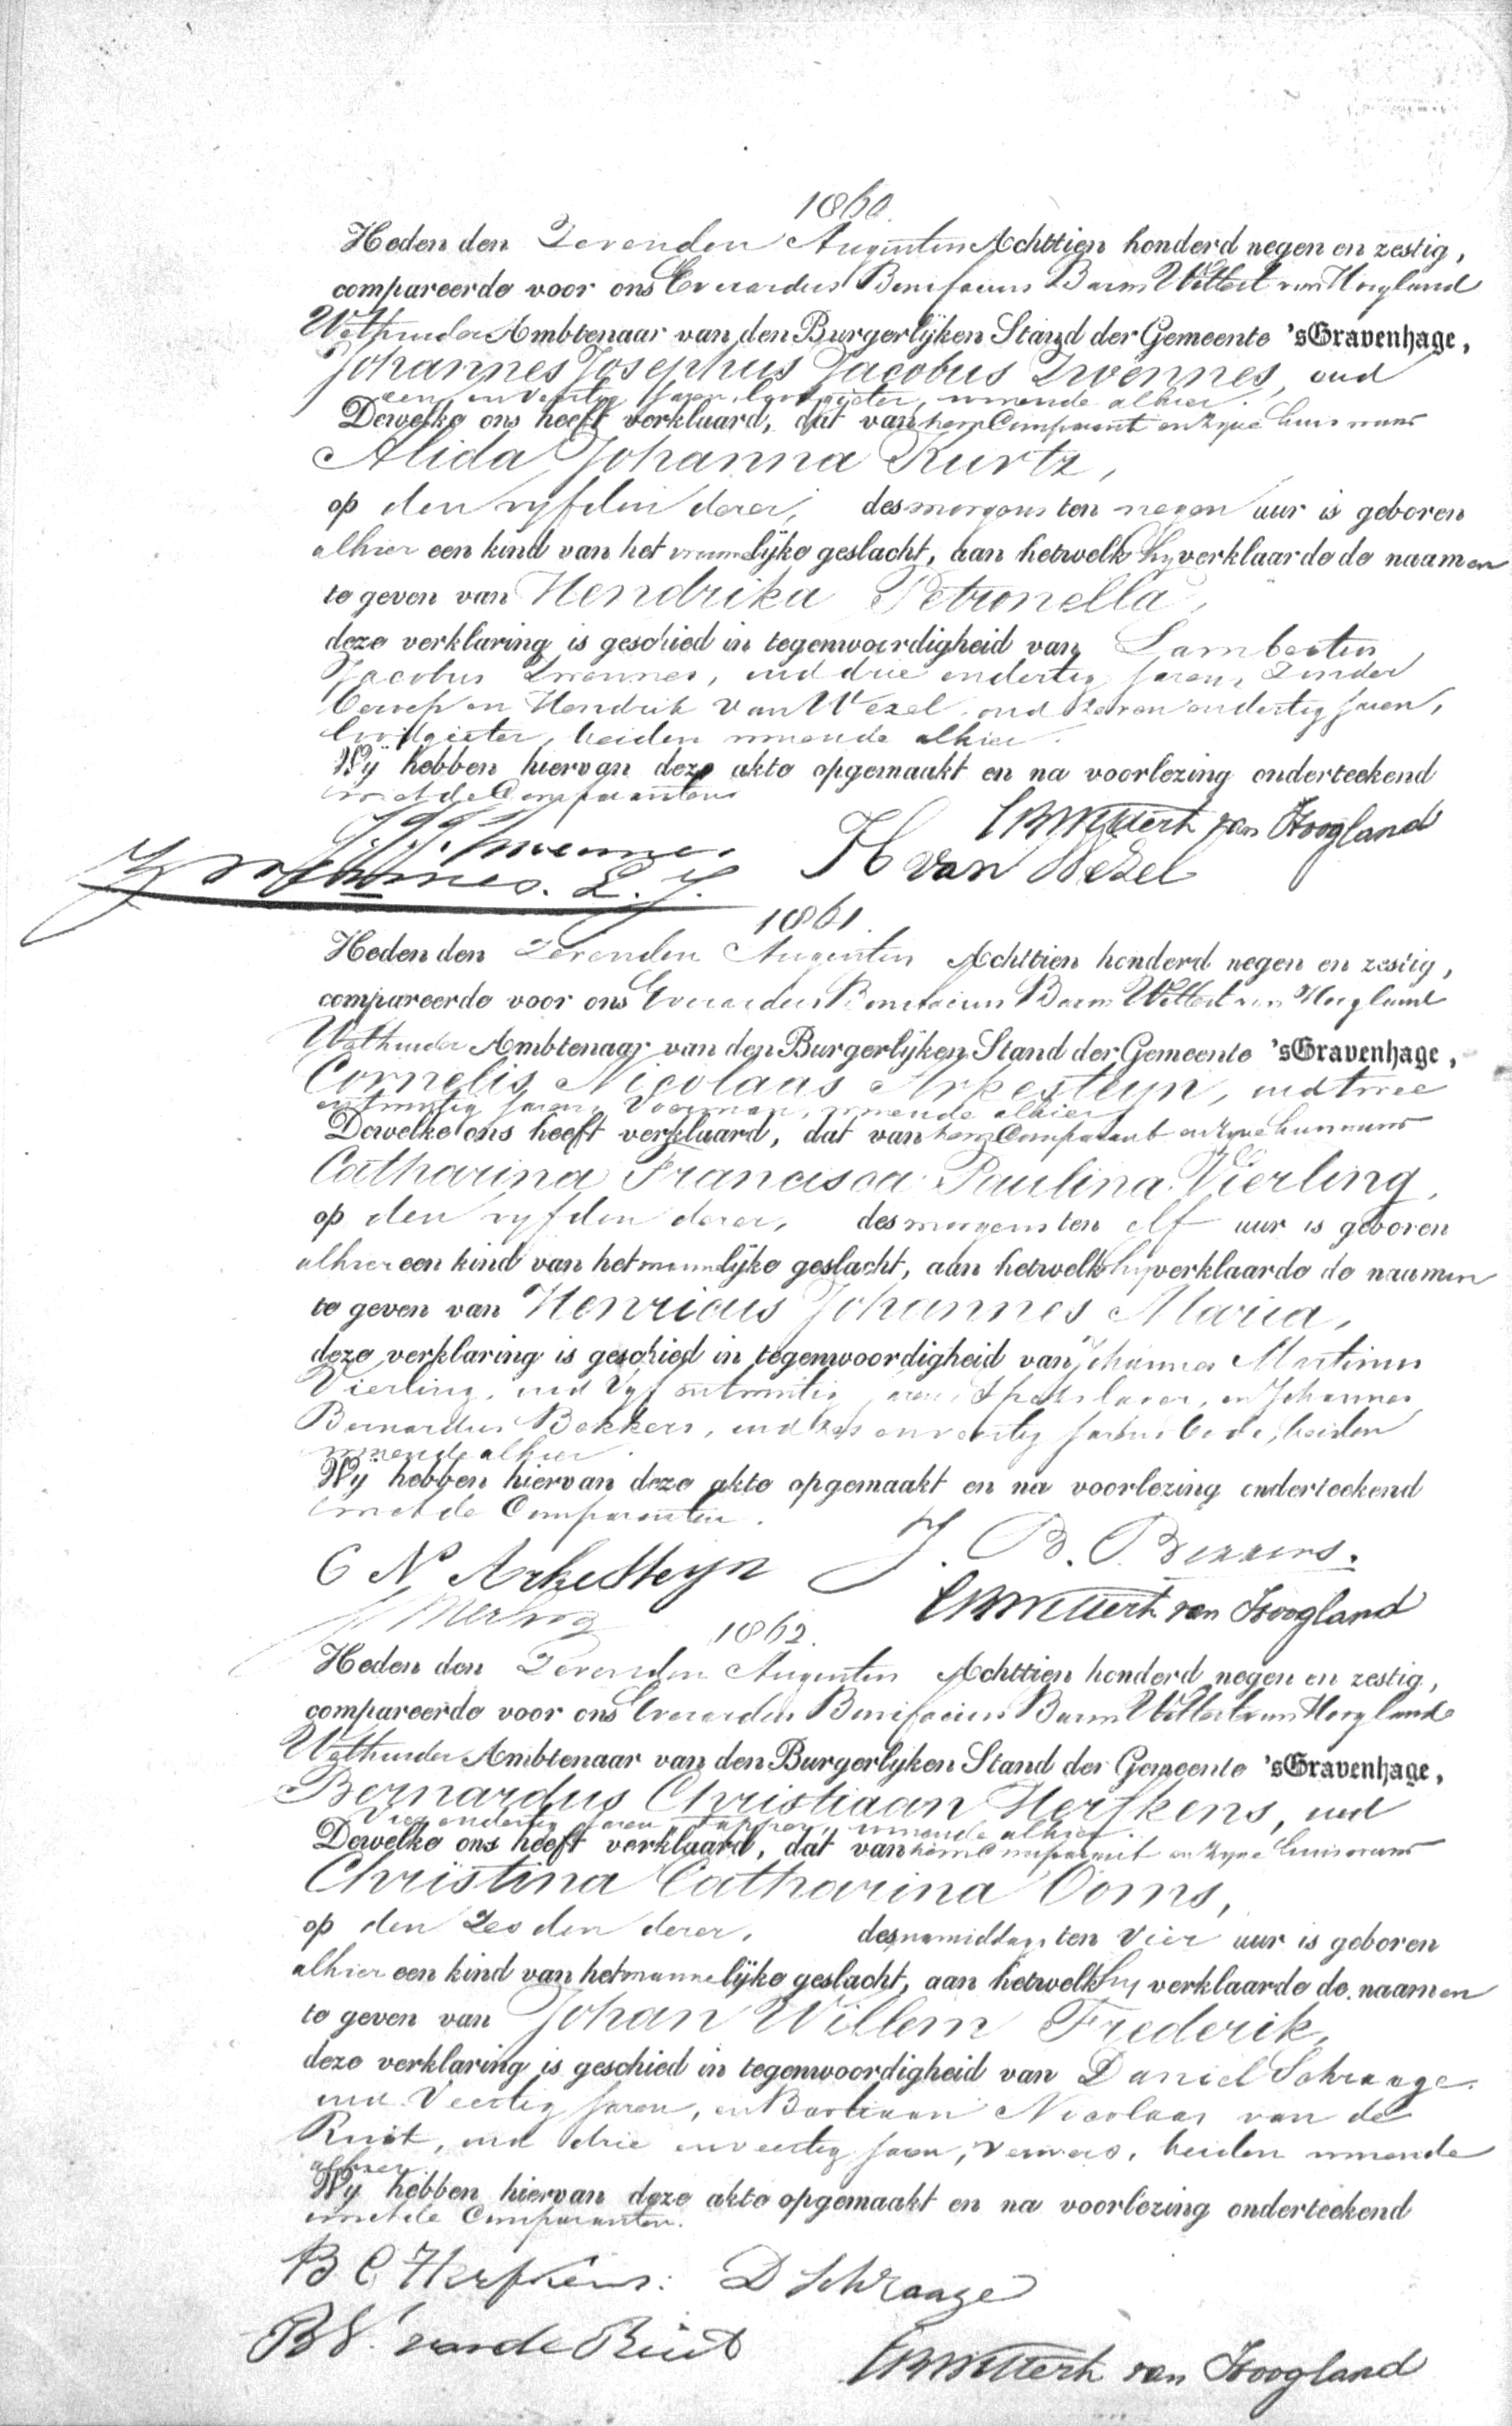 1860.
Heden den Zevenden Augustus Achttien honderd negen en zestig,
compareerde voor ons Everardus Bonifacius Baron Wittert van Hoogland
Wethouder Ambtenaar van den Burgerlijken Stand der Gemeente 'sGravenhage,
Johannes Josephus Jacobus Zwennes, oud
een en veertig Jaren, loodgieter, wonende alhier.
Dewelke ons heeft verklaard, dat van hem Comparant en zyne huisvrouw
Alida Johanna Kurtz,
op den vyfden dezer, des morgens ten negen uur is geboren
alhier een kind van het vrouwelijke geslacht, aan hetwelk hy verklaarde de naamen
te geven van Hendrika Petronella,
deze verklaring is geschied in tegenwoordigheid van Lambertus
Jacobus Zwennes, oud drie en dertig Jaren, Zonder
beroep en Hendrik van Wezel, oud zeven en dertig Jaren,
loodgieter, beiden wonende alhier.
Wij hebben hiervan deze akte opgemaakt en na voorlezing onderteekend
met de Comparanten
EBWittert van Hoogland
J. J. J. Zwennes
H van Wezel
Zwennes. L. J.
1861.
Heden den Zevenden Augustus Achttien honderd negen en zestig,
compareerde voor ons Everardus Bonifacius Baron Wittert van Hoogland
Wethouder Ambtenaar van den Burgerlijken Stand der Gemeente 'sGravenhage,
Cornelis Nicolaas Arkesteyn, oud twee
en twintig Jaren, Voerman, wonende alhier
Dewelke ons heeft verklaard, dat van hem Comparant en zyne huisvrouw
Catharina Francisca Paulina Vierling,
op den vyfden dezer, des morgens ten elf uur is geboren
alhier een kind van het mannelijke geslacht, aan hetwelk hy verklaarde de naamen
te geven van Henricus Johannes Maria,
deze verklaring is geschied in tegenwoordigheid van Johannes Martinus
Vierling, oud Vyf en twintig Jaren, en Johannes
Bernardus Bekkers, oud zes en veertig Jaren, bode, beiden
wonende alhier.
Wij hebben hiervan deze akte opgemaakt en na voorlezing onderteekend
met de Comparanten.
C N Arkesteyn J. B. Bekkers.
EBWittert van Hoogland
1862.
Heden den Zevenden Augustus Achttien honderd negen en zestig,
compareerde voor ons Everardus Bonifacius Baron Wittert van Hoogland
Wethouder Ambtenaar van den Burgerlijken Stand der Gemeente 'sGravenhage,
Bernardus Christiaan Herfkens, oud
Vier en dertig Jaren, Tapper, wonende alhier.
Dewelke ons heeft verklaard, dat van hem Comparant en zyne huisvrouw
Christina Catharina Ooms,
op den Zesden dezer, des namiddags ten Vier uur is geboren
alhier een kind van het mannelijke geslacht, aan hetwelk hy verklaarde de naamen
te geven van Johan Willem Frederik,
deze verklaring is geschied in tegenwoordigheid van Daniel Schraage.
oud Veertig Jaren, en Bastiaan Nicolaas van de
Ruit, oud drie en veertig Jaren, Ververs, beiden wonende
alhier.
Wij hebben hiervan deze akte opgemaakt en na voorlezing onderteekend
met de Comparanten.
B C Herfkens. D Schraage
B N. van de Ruit
EBWittert van Hoogland